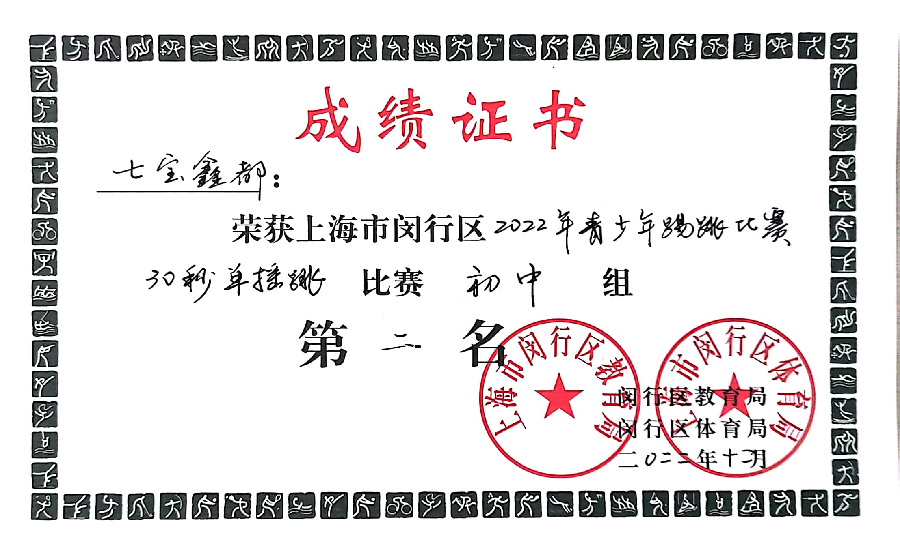 成绩证书
七宝鑫都：
荣获上海市闵行区2022年青少年踢跳比赛
30秒单摇跳 比赛 初中 组
第 二 名
上海市闵行区教育局
上海市闵行区体育局
闵行区教育局
闵行区体育局
二〇二二年十二月